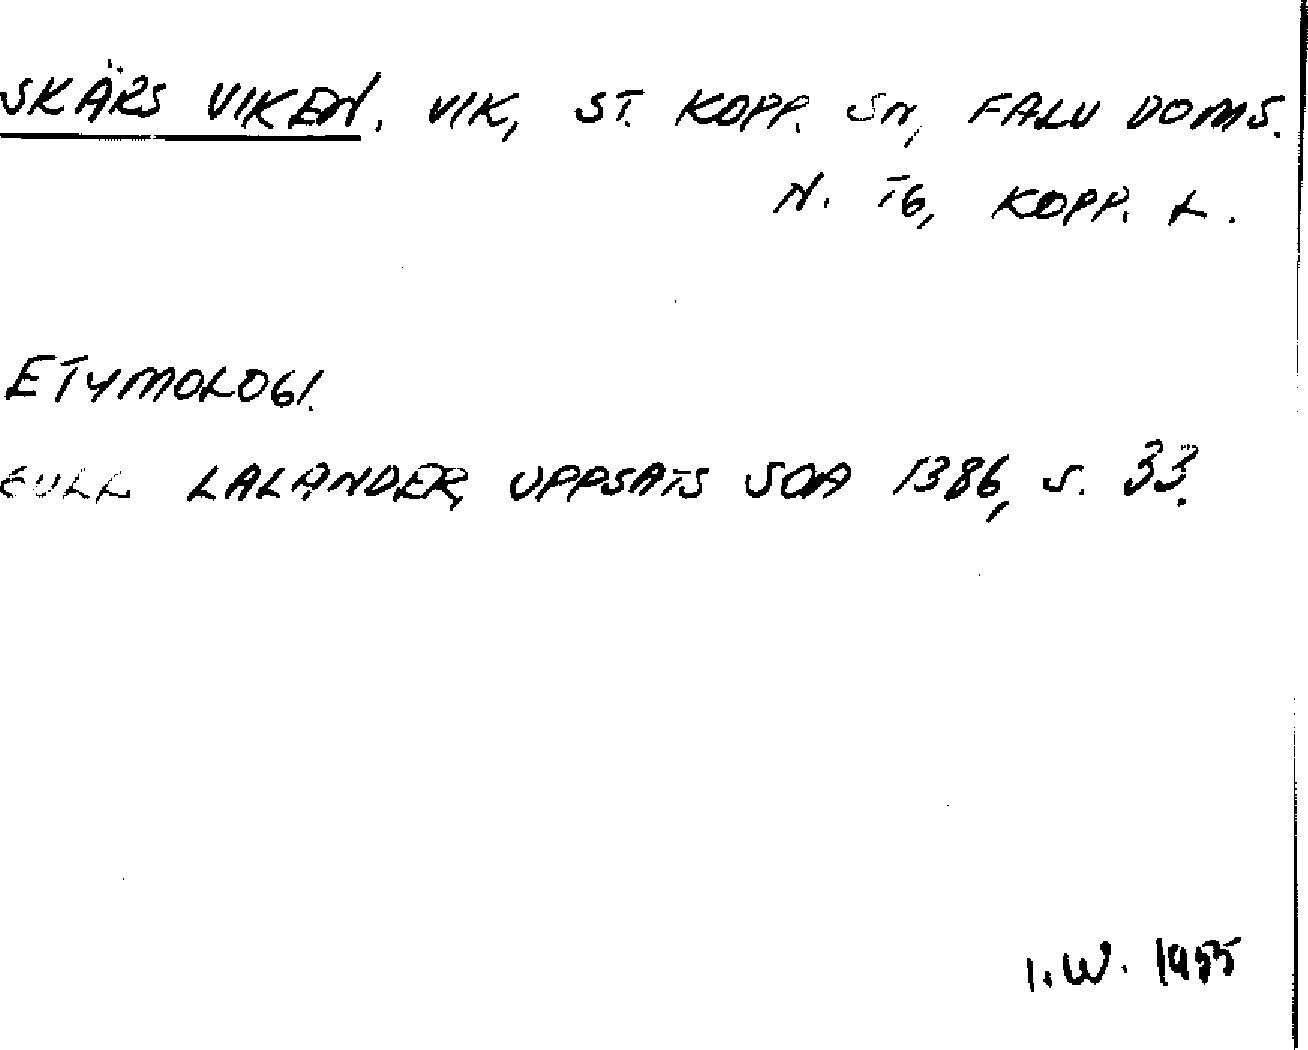 SKÄRS VIKEN. VIK, ST. KOPP. SN, FALU DOMS.
N. TG, KOPP. L.
ETYMOLOGI.
GULL LALANDER, UPPSATS SOA 1386, S. 33.
I.W. 1955